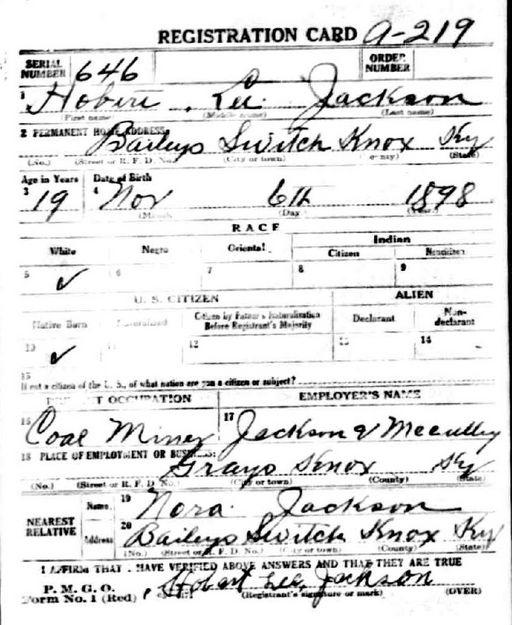 REGISTRATION CARD A-219
SERIAL NUMBER 646 ORDER NUMBER
1 Hobert Lee Jackson
(First name) (Middle name) (Last name)
2 PERMANENT HOME ADDRESS:
Baileys Switch Knox Ky
(No.) (Street or R. F. D. No.) (City or town) (County) (State)
Age in Years Date of Birth
3 19 4 Nov 6th 1898
(Month) (Day) (Year)
RACE
White Negro Oriental Indian
Citizen Noncitizen
5 ✓ 6 7 8 9
U. S. CITIZEN ALIEN
Native Born Naturalized Citizen by Father's Naturalization Before Registrant's Majority Declarant Non-declarant
10 ✓ 12 13 14
15
If not a citizen of the U. S., of what nation are you a citizen or subject?
PRESENT OCCUPATION EMPLOYER'S NAME
16 Coal Miner 17 Jackson & Mccully
18 PLACE OF EMPLOYMENT OR BUSINESS:
Grays Knox Ky
(No.) (Street or R. F. D. No.) (City or town) (County) (State)
NEAREST RELATIVE
Name 19 Nora Jackson
Address 20 Baileys Switch Knox Ky
(No.) (Street or R. F. D. No.) (City or town) (County) (State)
I AFFIRM THAT I HAVE VERIFIED ABOVE ANSWERS AND THAT THEY ARE TRUE
P. M. G. O.
Form No. 1 (Red) Hobert Lee Jackson
(Registrant's signature or mark) (OVER)